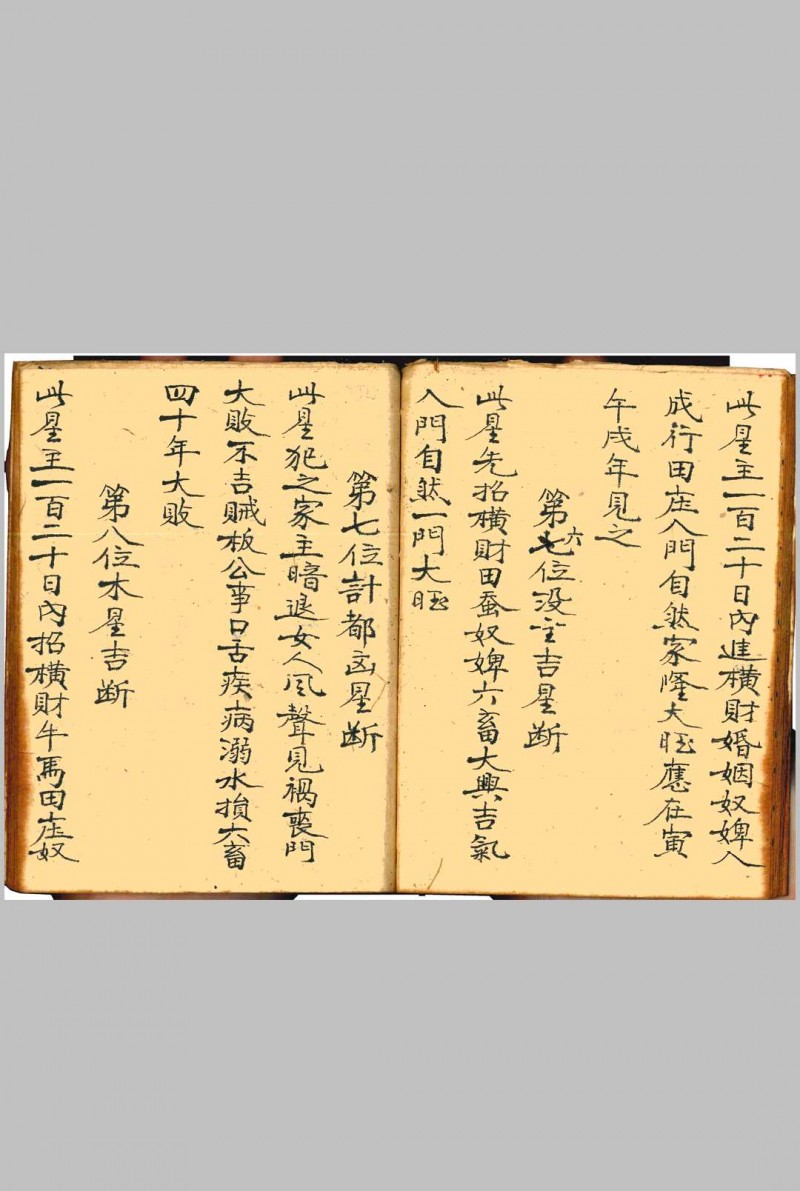 此星主一百二十日內進橫財婚姻奴婢入
成行田庄入門自然家隆大旺應在寅
午戌年見之
第六位没 吉星断
此星先招橫財田蚕奴婢六畜大興吉氣
入門自然一門大旺
第七位計都凶星断
此星犯之家主暗退女人风聲見禍喪門
大敗不吉賊板公事口舌疾病溺水损六畜
四十年大敗
第八位木星吉断
此星主一百二十日內招橫財牛馬田庄奴